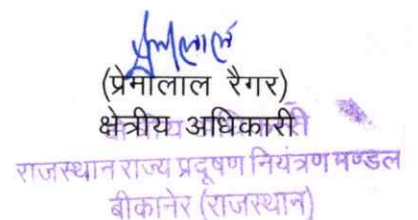 (प्रेमालाल रैगर)
क्षेत्रीय अधिकारी
राजस्थान राज्य प्रदूषण नियंत्रण मण्डल
बीकानेर (राजस्थान)